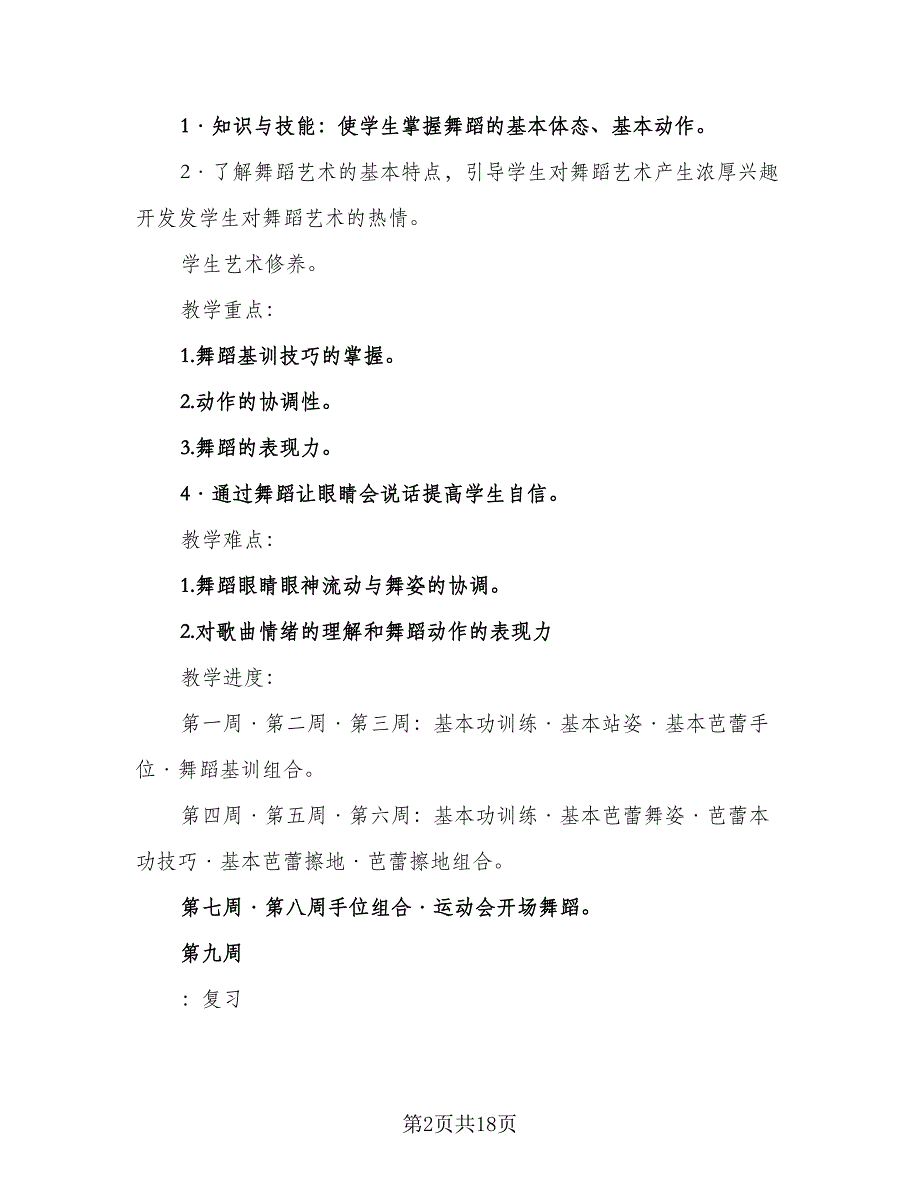 1·知识与技能：使学生掌握舞蹈的基本体态、基本动作。
2·了解舞蹈艺术的基本特点，引导学生对舞蹈艺术产生浓厚兴趣
开发发学生对舞蹈艺术的热情。
学生艺术修养。
教学重点：
1.舞蹈基训技巧的掌握。
2.动作的协调性。
3.舞蹈的表现力。
4·通过舞蹈让眼睛会说话提高学生自信。
教学难点：
1.舞蹈眼睛眼神流动与舞姿的协调。
2.对歌曲情绪的理解和舞蹈动作的表现力
教学进度：
第一周·第二周·第三周：基本功训练·基本站姿·基本芭蕾手
位·舞蹈基训组合。
第四周·第五周·第六周：基本功训练·基本芭蕾舞姿·芭蕾本
功技巧·基本芭蕾擦地·芭蕾擦地组合。
第七周·第八周手位组合·运动会开场舞蹈。
第九周
：复习
第2页共18页